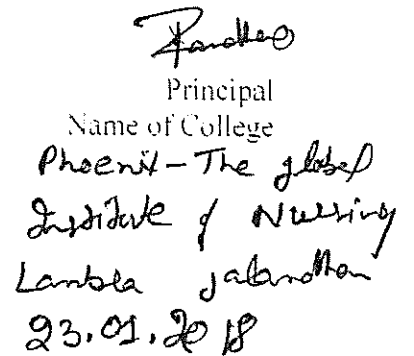 Principal
Name of College
Phoenix - The global
Institute of Nursing
Lambra Jalandhar
23.01.2018